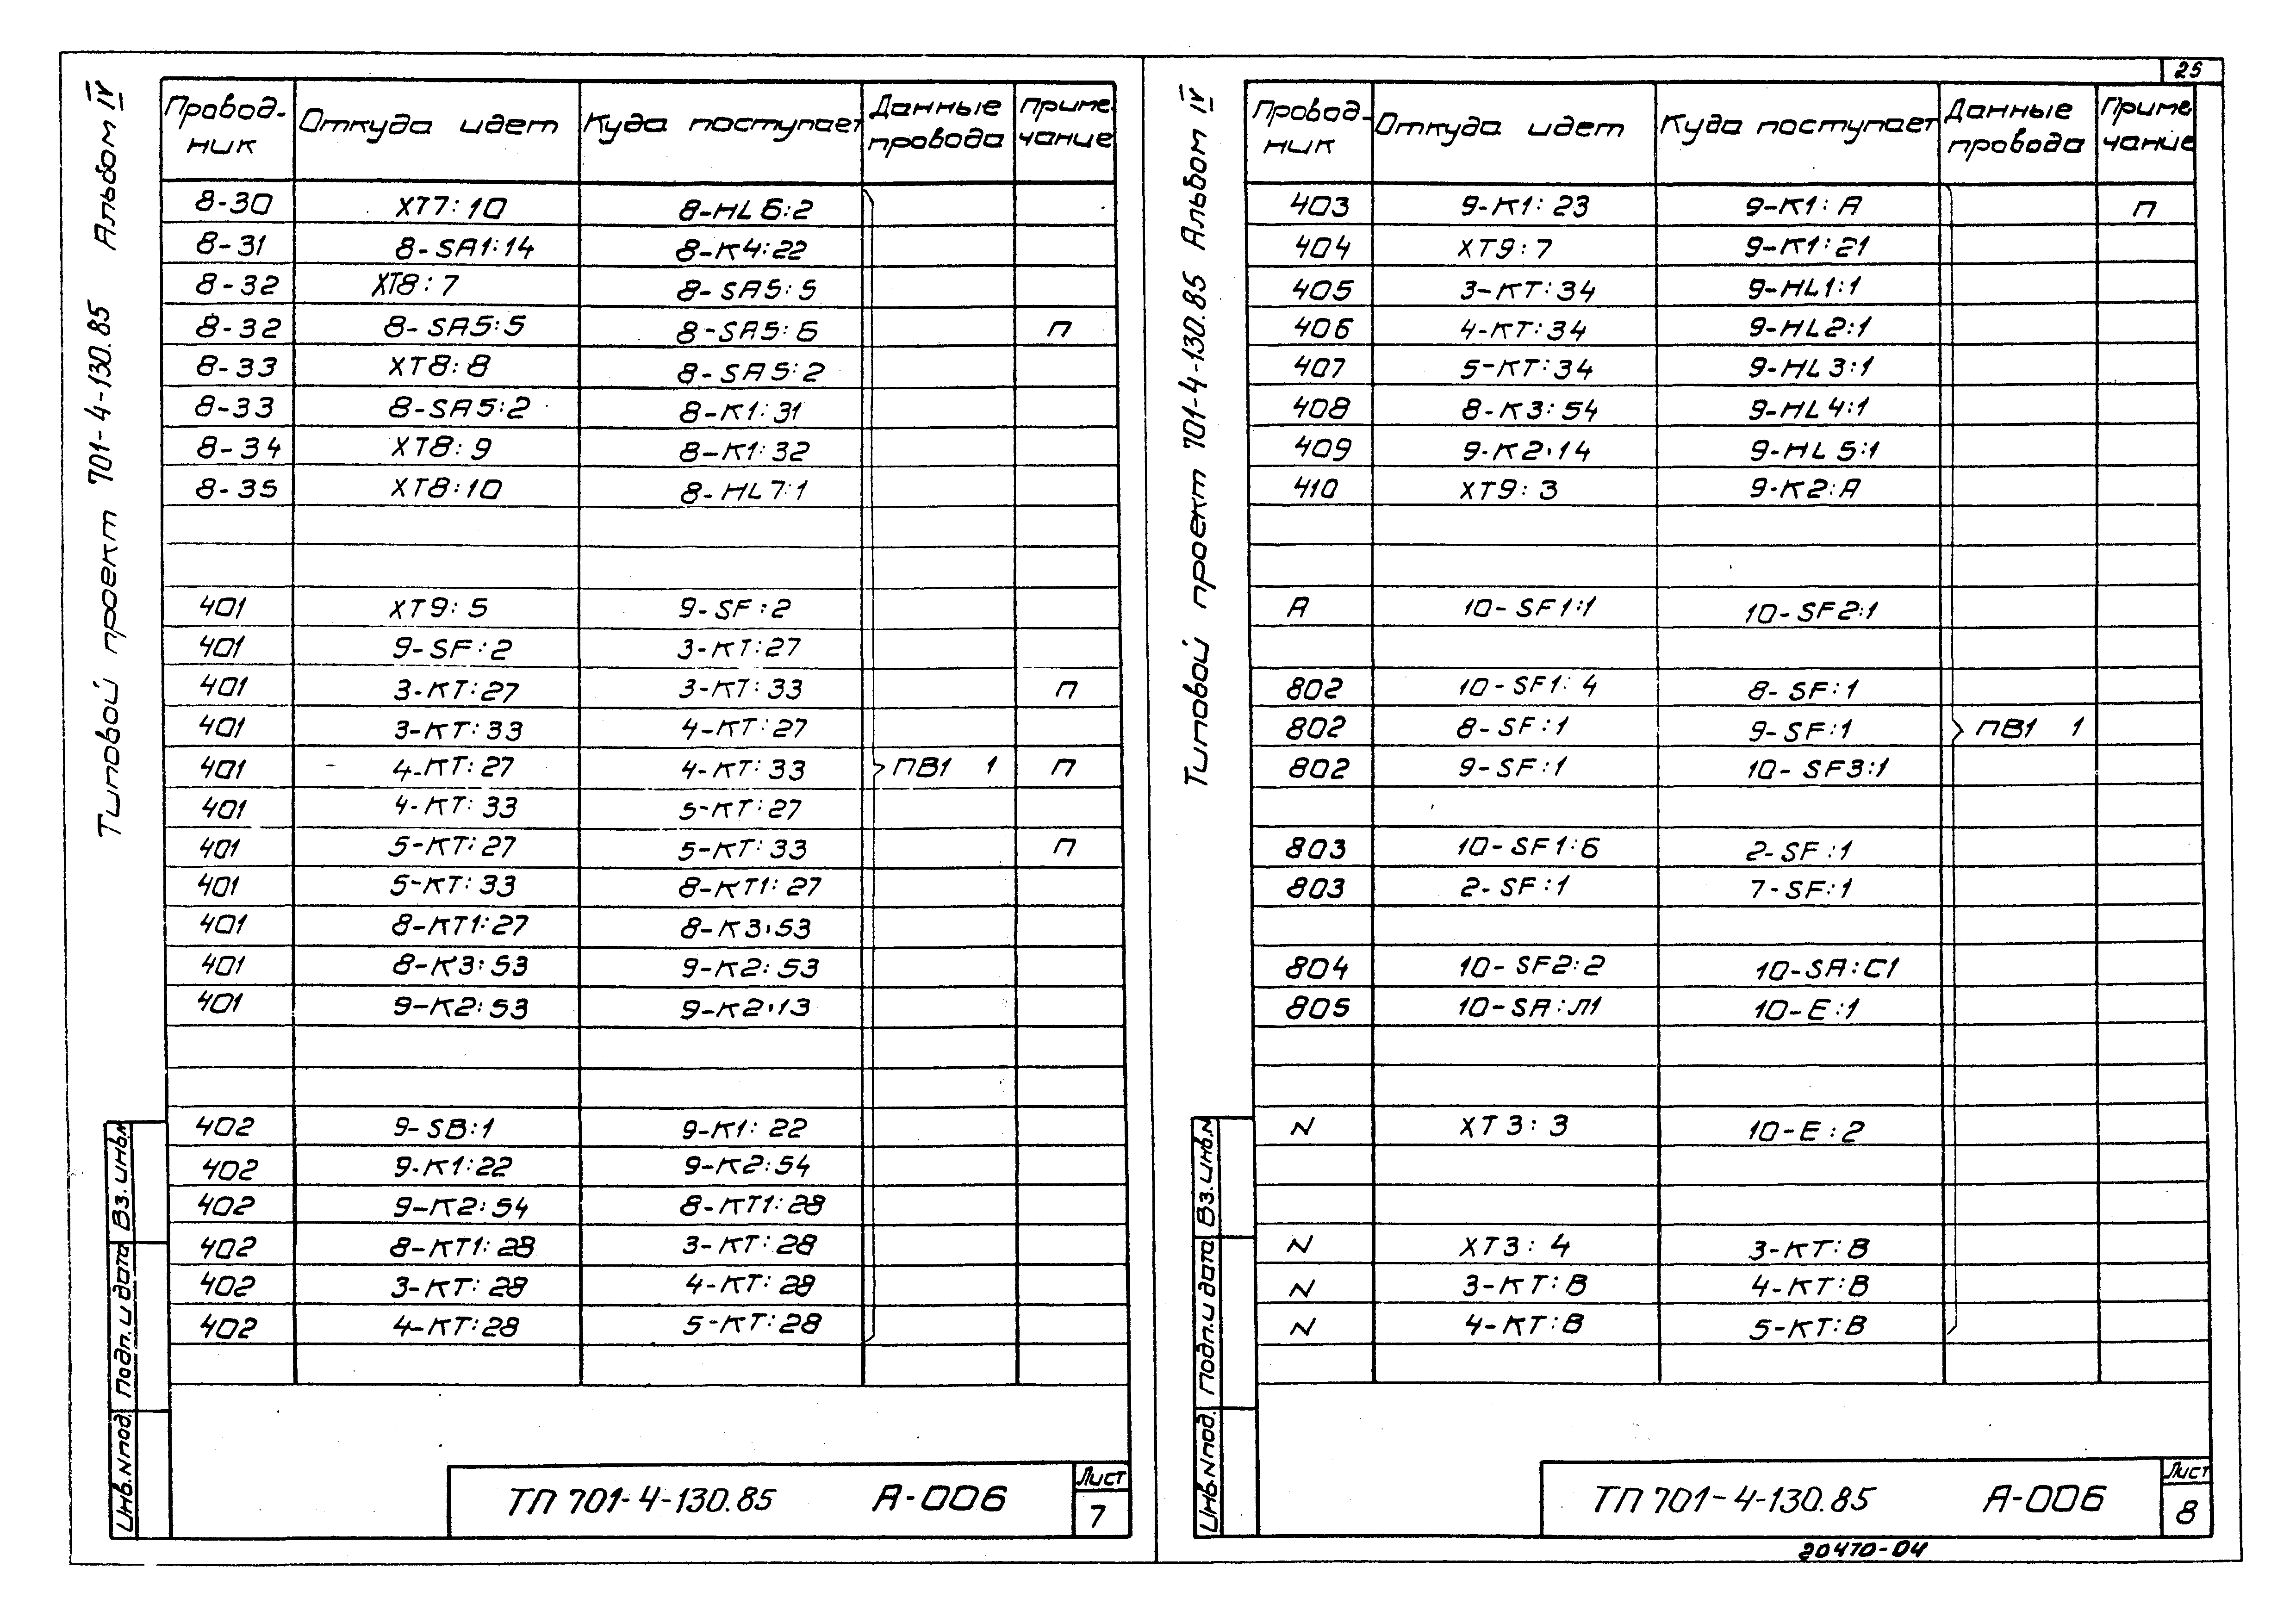 25
Типовой проект 701-4-130.85 Альбом IV
Провод- Откуда идет Куда поступает Данные Приме-
ник провода чание
8-30 XT7:10 8-HL6:2
8-31 8-SA1:14 8-K4:22
8-32 XT8:7 8-SA5:5
8-32 8-SA5:5 8-SA5:6 П
8-33 XT8:8 8-SA5:2
8-33 8-SA5:2 8-K1:31
8-34 XT8:9 8-K1:32
8-35 XT8:10 8-HL7:1
401 XT9:5 9-SF:2
401 9-SF:2 3-KT:27
401 3-KT:27 3-KT:33 П
401 3-KT:33 4-KT:27
401 4-KT:27 4-KT:33 ПВ1 1 П
401 4-KT:33 5-KT:27
401 5-KT:27 5-KT:33 П
401 5-KT:33 8-KT1:27
401 8-KT1:27 8-K3:53
401 8-K3:53 9-K2:53
401 9-K2:53 9-K2:13
402 9-SB:1 9-K1:22
402 9-K1:22 9-K2:54
402 9-K2:54 8-KT1:28
402 8-KT1:28 3-KT:28
402 3-KT:28 4-KT:28
402 4-KT:28 5-KT:28
Инв.N под. Подп. и дата Вз. инв.N
ТП 701-4-130.85 А-006
Лист
7
Типовой проект 701-4-130.85 Альбом IV
Провод- Откуда идет Куда поступает Данные Приме
ник провода чание
403 9-K1:23 9-K1:A П
404 XT9:7 9-K1:21
405 3-KT:34 9-HL1:1
406 4-KT:34 9-HL2:1
407 5-KT:34 9-HL3:1
408 8-K3:54 9-HL4:1
409 9-K2:14 9-HL5:1
410 XT9:3 9-K2:A
A 10-SF1:1 10-SF2:1
802 10-SF1:4 8-SF:1
802 8-SF:1 9-SF:1 ПВ1 1
802 9-SF:1 10-SF3:1
803 10-SF1:6 2-SF:1
803 2-SF:1 7-SF:1
804 10-SF2:2 10-SA:C1
805 10-SA:Л1 10-E:1
N XT3:3 10-E:2
N XT3:4 3-KT:B
N 3-KT:B 4-KT:B
N 4-KT:B 5-KT:B
Инв.N под. Подп. и дата Вз. инв.N
ТП 701-4-130.85 А-006
Лист
8
20470-04